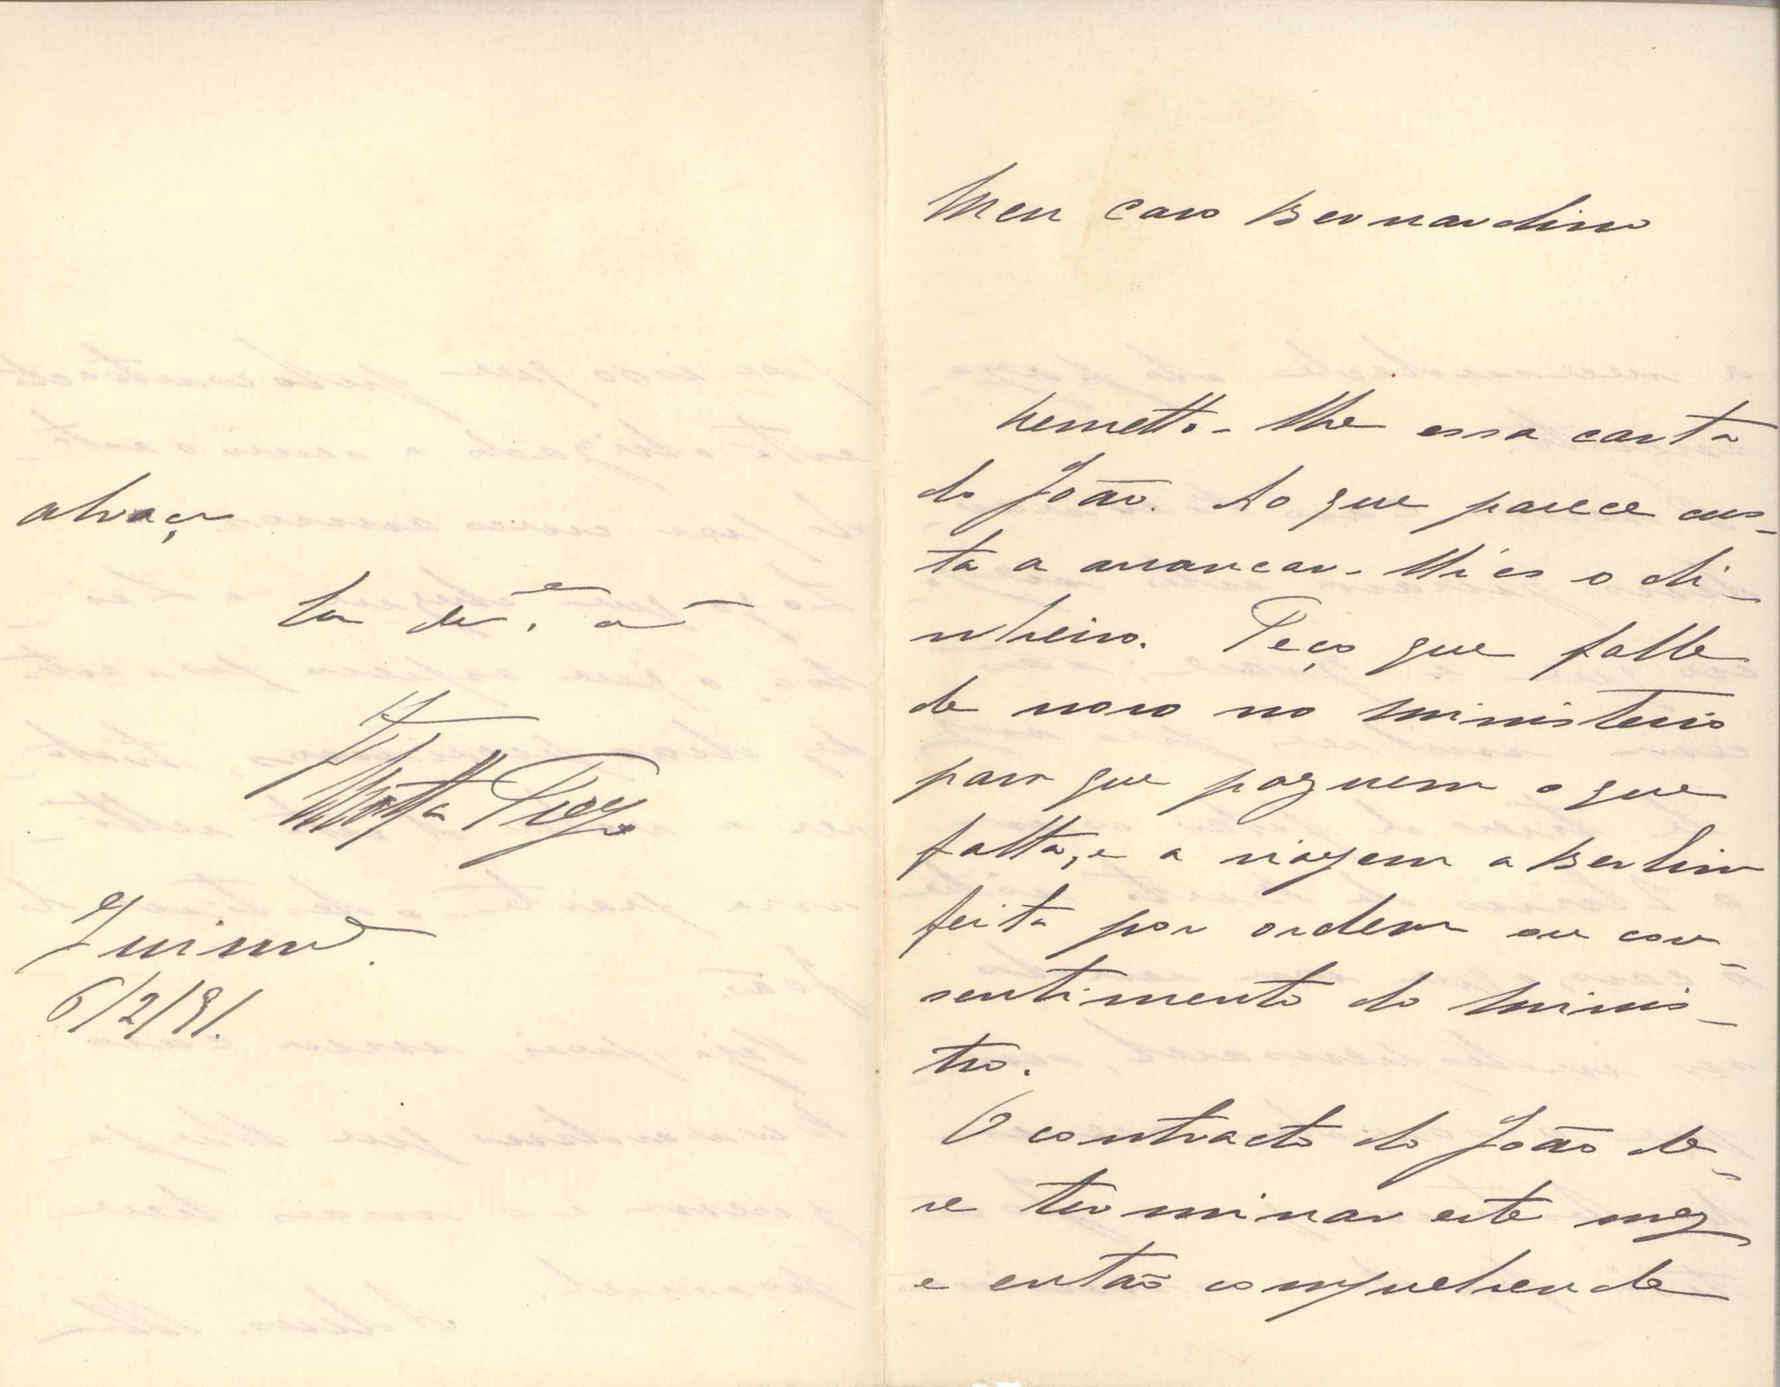 Meu caro Bernardino
Remetto-lhe essa carta
do João. Ao que parece cus-
ta a arrancar-lhes o di-
nheiro. Peço que falle
de novo no ministerio
para que paguem o que
falta, e a viagem a Berlim
feita por ordem ou con-
sentimento do minis-
tro.
O contracto do João de-
ve terminar este mez
e então comprehende
abraça
am.º
F Motta Prego
Guim.es
6/2/91.